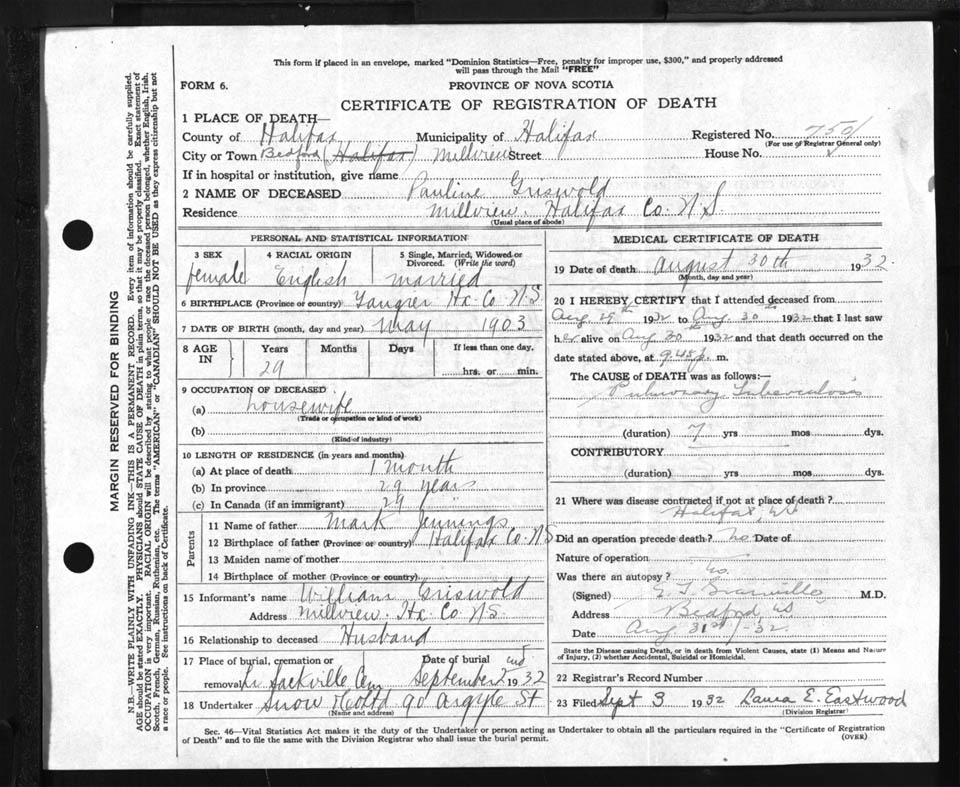 This form if placed in an envelope, marked "Dominion Statistics—Free, penalty for improper use, $300," and properly addressed
will pass through the Mail "FREE"
FORM 6.
PROVINCE OF NOVA SCOTIA
CERTIFICATE OF REGISTRATION OF DEATH
1 PLACE OF DEATH—
County of Halifax Municipality of Halifax Registered No.
(For use of Registrar General only)
City or Town Bedford (Halifax) Millview Street House No.
If in hospital or institution, give name
2 NAME OF DECEASED Pauline Griswold
Residence Millview. Halifax Co. N.S.
(Usual place of abode)
PERSONAL AND STATISTICAL INFORMATION
3 SEX 4 RACIAL ORIGIN 5 Single, Married, Widowed or
Divorced. (Write the word)
female English married
6 BIRTHPLACE (Province or country) Tangier Hx. Co. N.S.
7 DATE OF BIRTH (month, day and year) May 1903
8 AGE IN Years Months Days If less than one day.
29 hrs. or min.
9 OCCUPATION OF DECEASED
(a) housewife
(Trade or occupation or kind of work)
(b)
(Kind of industry)
10 LENGTH OF RESIDENCE (in years and months)
(a) At place of death 1 month
(b) In province 29 years
(c) In Canada (if an immigrant) 29 "
Parents
11 Name of father Mark Jennings
12 Birthplace of father (Province or country) Halifax Co. N.S
13 Maiden name of mother
14 Birthplace of mother (Province or country)
15 Informant's name William Griswold
Address Millview. Hx. Co. N.S.
16 Relationship to deceased Husband
17 Place of burial, cremation or Date of burial
removal Lr Sackville Cem September 2nd 1932
18 Undertaker Snow & Co Ltd 90 Argyle St
(Name and address)
MEDICAL CERTIFICATE OF DEATH
19 Date of death August 30th 1932.
(Month, day and year)
20 I HEREBY CERTIFY that I attended deceased from
Aug. 29th 1932 to Aug. 30th 1932 that I last saw
her alive on Aug 30th 1932 and that death occurred on the
date stated above, at 9.45 p. m.
The CAUSE of DEATH was as follows:—
Pulmonary Tuberculosis
(duration) 7 yrs mos dys.
CONTRIBUTORY
(duration) yrs mos dys.
21 Where was disease contracted if not at place of death?
Halifax, NS
Did an operation precede death? no Date of
Nature of operation
Was there an autopsy? no.
(Signed) M.D.
Address Bedford, NS
Date Aug 31st/-32.
State the Disease causing Death, or in death from Violent Causes, state (1) Means and Nature
of Injury, (2) whether Accidental, Suicidal or Homicidal.
22 Registrar's Record Number
23 Filed Sept 3 1932 Laura E. Eastwood
(Division Registrar)
Sec. 46—Vital Statistics Act makes it the duty of the Undertaker or person acting as Undertaker to obtain all the particulars required in the "Certificate of Registration
of Death" and to file the same with the Division Registrar who shall issue the burial permit.
(OVER)
MARGIN RESERVED FOR BINDING
N.B.—WRITE PLAINLY WITH UNFADING INK—THIS IS A PERMANENT RECORD. Every item of information should be carefully supplied.
AGE should be stated EXACTLY. PHYSICIANS should STATE CAUSE OF DEATH in plain terms, so that it may be properly classified. Exact statement of
OCCUPATION is very important. RACIAL ORIGIN will be described by stating to what people or race the deceased person belonged, whether English, Irish,
Scotch, French, German, Russian, Ruthenian, etc. The terms "AMERICAN" or "CANADIAN" SHOULD NOT BE USED as they express citizenship but not
a race or people. See instructions on back of Certificate.